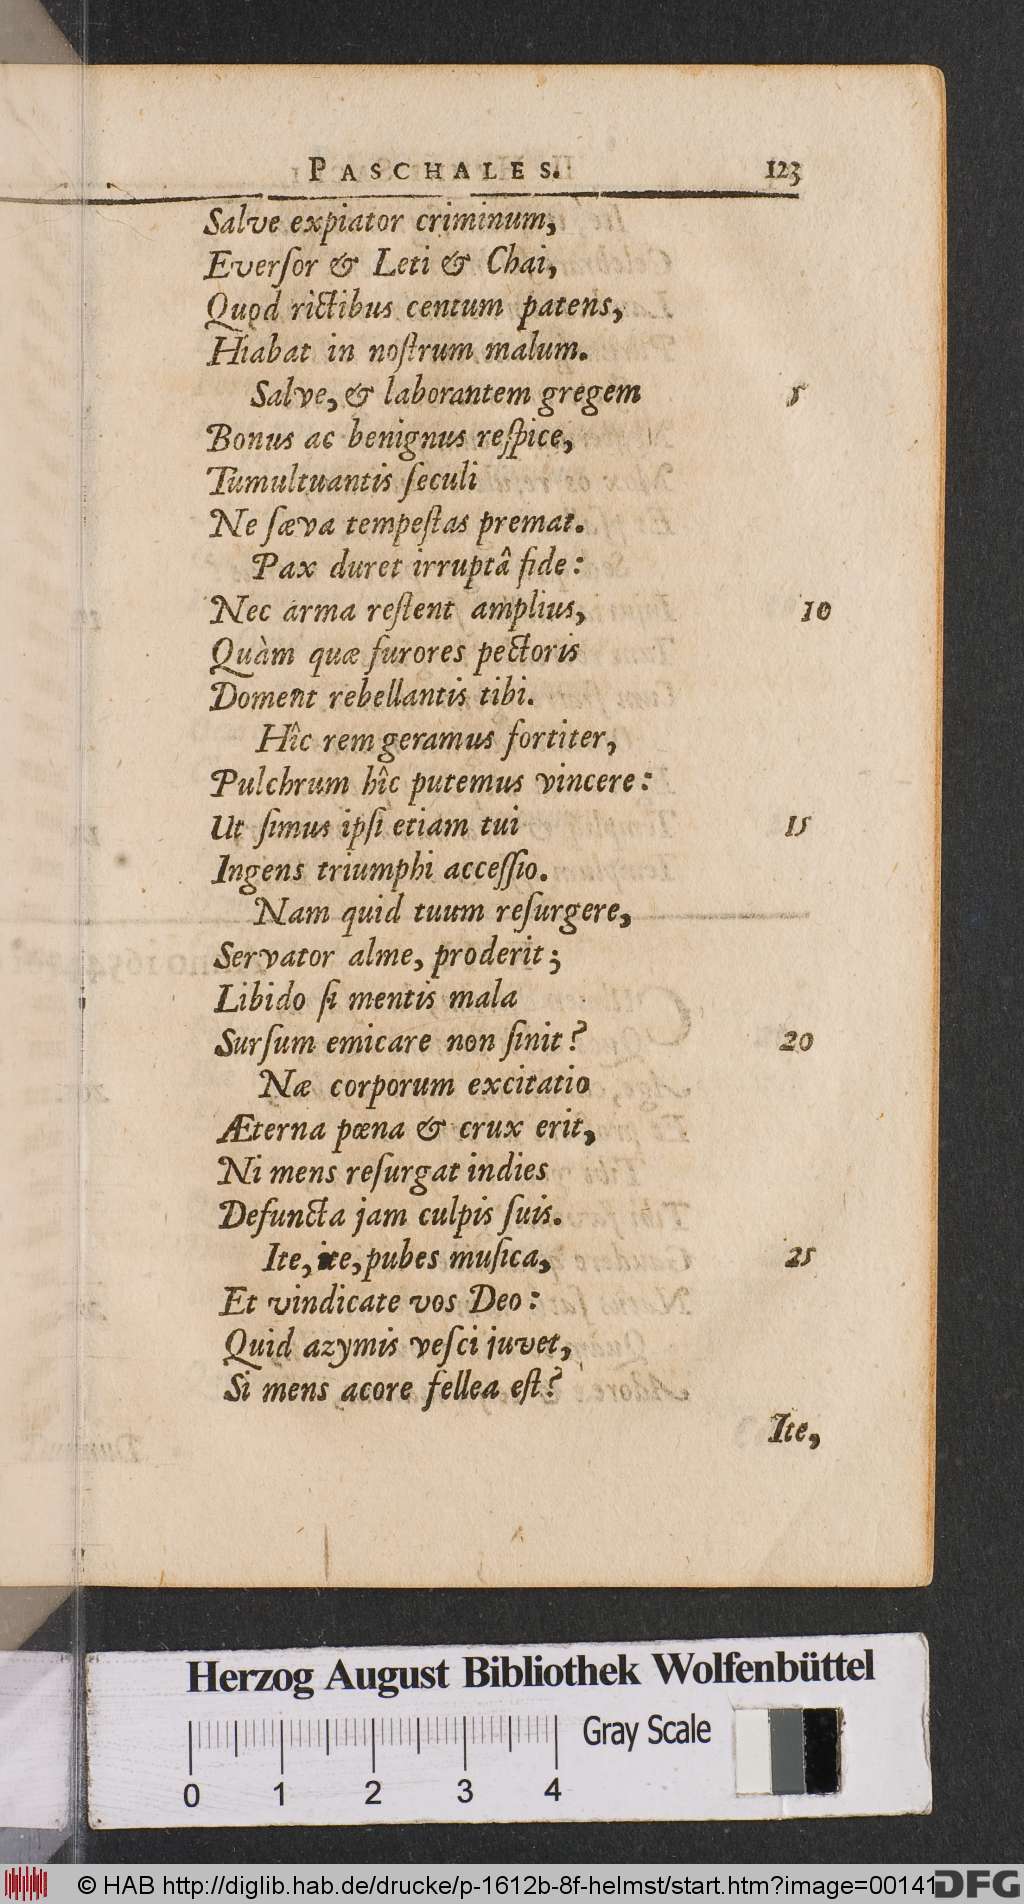 PASCHALES. 123
Salve expiator criminum,
Everſor & Leti & Chai,
Quod rictibus centum patens,
Hiabat in noſtrum malum.
Salve, & laborantem gregem 5
Bonus ac benignus reſpice,
Tumultuantis ſeculi
Ne ſæva tempeſtas premat.
Pax duret irruptâ fide:
Nec arma reſtent amplius, 10
Quàm quæ furores pectoris
Doment rebellantis tibi.
Hîc rem geramus fortiter,
Pulchrum hîc putemus vincere:
Ut ſimus ipſi etiam tui 15
Ingens triumphi acceſſio.
Nam quid tuum reſurgere,
Servator alme, proderit;
Libido ſi mentis mala
Surſum emicare non ſinit? 20
Næ corporum excitatio
Æterna pœna & crux erit,
Ni mens reſurgat indies
Defuncta jam culpis ſuis.
Ite, ite, pubes muſica, 25
Et vindicate vos Deo:
Quid azymis veſci juvet,
Si mens acore fellea eſt?
Ite,
Herzog August Bibliothek Wolfenbüttel
Gray Scale
0 1 2 3 4
© HAB http://diglib.hab.de/drucke/p-1612b-8f-helmst/start.htm?image=00141
DFG